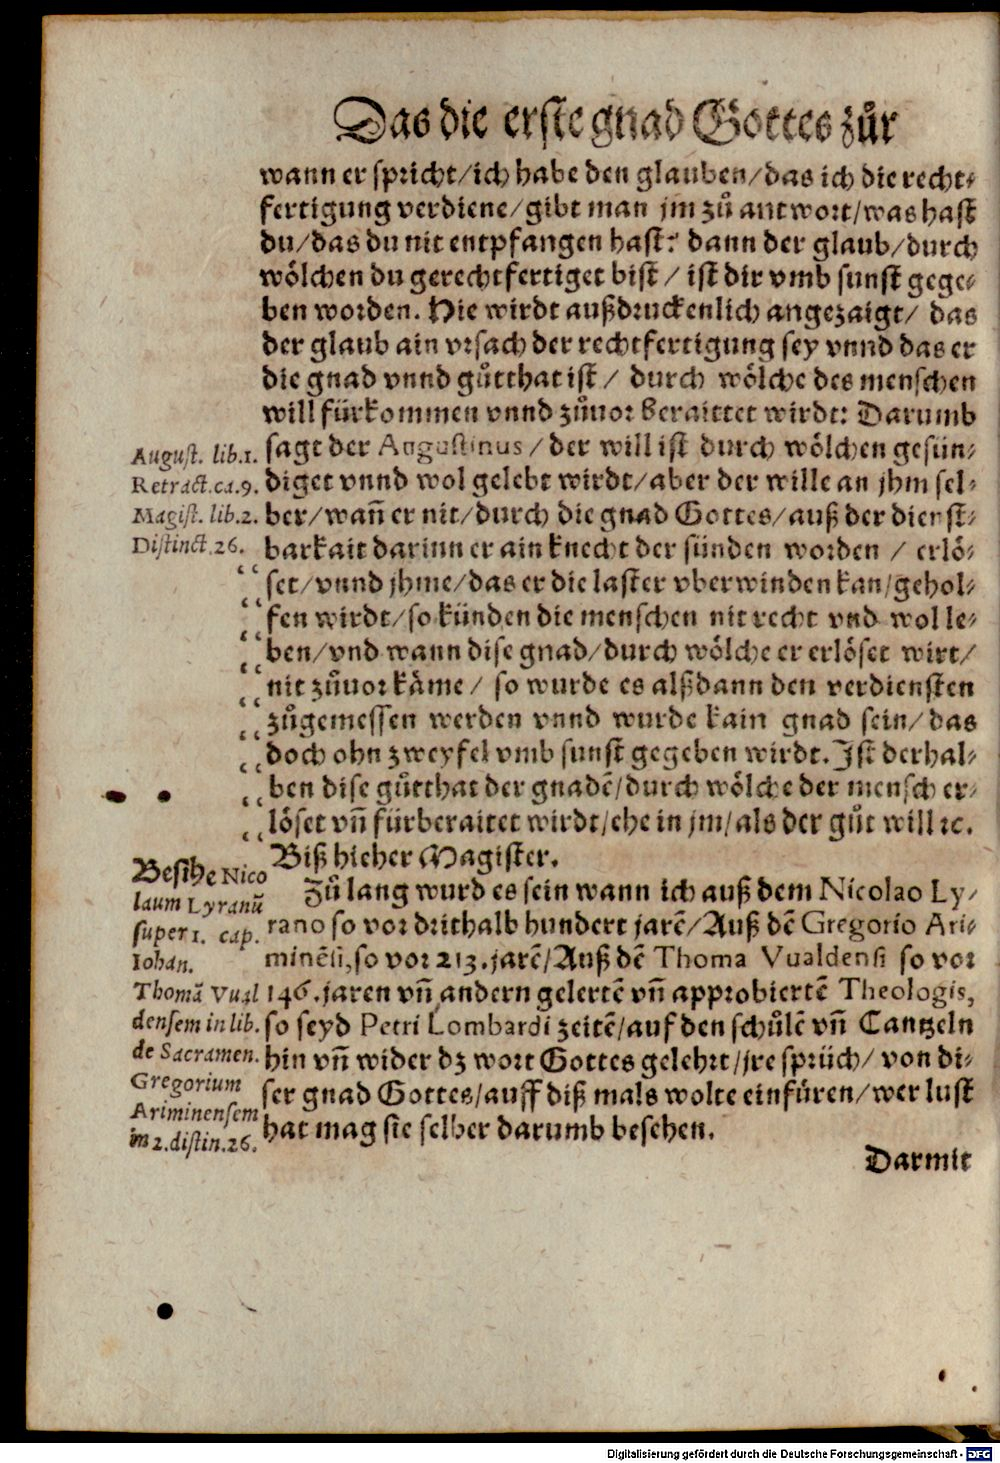 Das die erste gnad Gottes zůr
wann er spricht/ich habe den glauben/das ich die recht-
fertigung verdiene/gibt man jm zů antwort/was hast
du/das du nit entpfangen hast? dann der glaub/durch
wölchen du gerechtfertiget bist/ ist dir vmb sunst gege-
ben worden. Hie wirdt außdruckenlich angezaigt/ das
der glaub ain vrsach der rechtfertigung sey vnnd das er
die gnad vnnd gůtthat ist/ durch wölche des menschen
will fürkommen vnnd zůuor beraittet wirdt: Darumb
sagt der Augustinus/ der will ist durch wölchen gesün-
diget vnnd wol gelebt wirdt/aber der wille an jhm sel-
ber/wañ er nit/durch die gnad Gottes/auß der dienst-
barkait darinn er ain knecht der sünden worden / erlö-
set/vnnd jhme/das er die laster vberwinden kan/gehol-
fen wirdt/so künden die menschen nit recht vnd wol le-
ben/vnd wann dise gnad/durch wölche er erlöset wirt/
nit zůuor käme/ so wurde es alßdann den verdiensten
zůgemessen werden vnnd wurde kain gnad sein/das
doch ohn zweyfel vmb sunst gegeben wirdt. Ist derhal-
ben dise gůtthat der gnadē/durch wölche der mensch er-
löset vñ fürberaitet wirdt/ehe in jm/als der gůt will ꝛc.
Biß hieher Magister.
Zů lang wurd es sein wann ich auß dem Nicolao Ly-
rano so vor drithalb hundert jarē/Auß dē Gregorio Ari-
minēsi,so vor 213.jarē/Auß dē Thoma Vualdensi so vor
146.jaren vñ andern gelertē vñ approbiertē Theologis,
so seyd Petri Lombardi zeitē/auf den schůlē vñ Cantzeln
hin vñ wider dz wort Gottes gelehrt/jre sprüch/ von di-
ser gnad Gottes/auff diß mals wolte einfüren/wer lust
hat mag sie selber darumb besehen.
Darmit
August. lib.1.
Retract.ca.9.
Magist. lib.2.
Distinct.26.
Besihe Nico
laum Lyranū
super 1. cap.
Iohan.
Thomā Vual
densem in lib.
de Sacramen.
Gregorium
Ariminensem
in 2.distin.26.
Digitalisierung gefördert durch die Deutsche Forschungsgemeinschaft - DFG